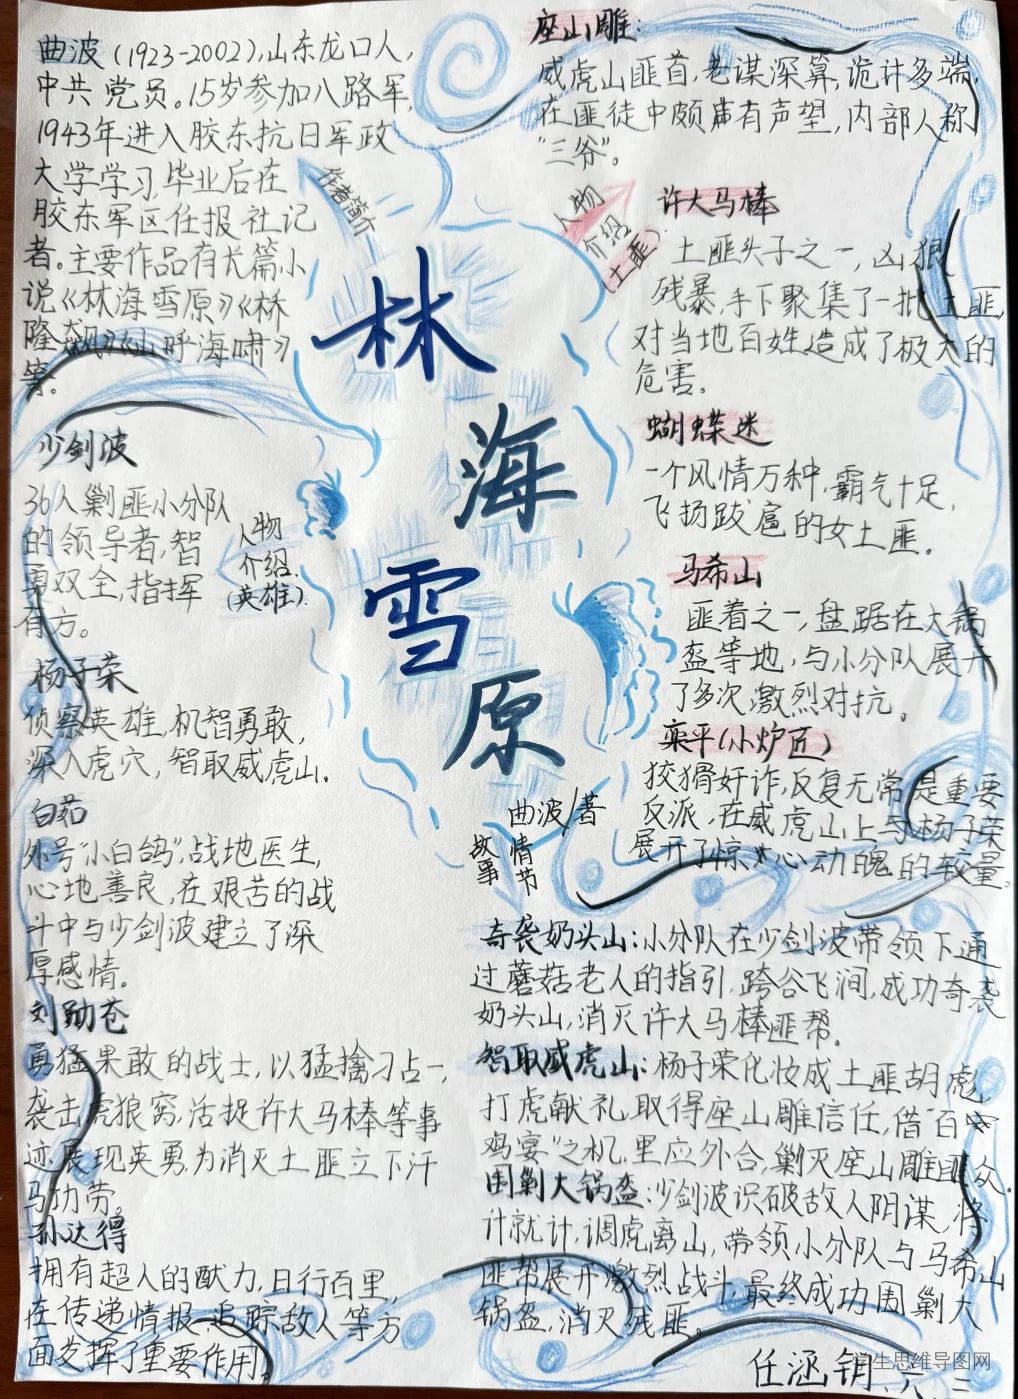 曲波（1923-2002），山东龙口人，
中共党员。15岁参加八路军，
1943年进入胶东抗日军政
大学学习，毕业后在
胶东军区任报社记
者。主要作品有长篇小
说《林海雪原》《林
隆飙》《山呼海啸》
等。
作者简介
少剑波
36人剿匪小分队
的领导者，智
勇双全，指挥
有方。
人物
介绍
（英雄）
杨子荣
侦察英雄，机智勇敢，
深入虎穴，智取威虎山。
白茹
外号“小白鸽”，战地医生，
心地善良，在艰苦的战
斗中与少剑波建立了深
厚感情。
刘勋苍
勇猛果敢的战士，以猛擒刁占一，
袭击虎狼窝，活捉许大马棒等事
迹展现英勇，为消灭土匪立下汗
马功劳。
孙达得
拥有超人的耐力，日行百里，
在传递情报，追踪敌人等方
面发挥了重要作用。
林
海
雪
原
曲波/著
座山雕：
威虎山匪首，老谋深算，诡计多端，
在匪徒中颇有声望，内部人称
“三爷”。
人物
介绍
（土匪）
许大马棒
土匪头子之一，凶狠
残暴，手下聚集了一批土匪，
对当地百姓造成了极大的
危害。
蝴蝶迷
一个风情万种，霸气十足，
飞扬跋扈的女土匪。
马希山
匪首之一，盘踞在大锅
盔等地，与小分队展开
了多次激烈对抗。
栾平（小炉匠）
狡猾奸诈，反复无常是重要
反派，在威虎山上与杨子荣
展开了惊心动魄的较量。
故事
情节
奇袭奶头山：小分队在少剑波带领下通
过蘑菇老人的指引，跨谷飞涧，成功奇袭
奶头山，消灭许大马棒匪帮。
智取威虎山：杨子荣化妆成土匪胡彪，
打虎献礼，取得座山雕信任，借“百
鸡宴”之机，里应外合，剿灭座山雕匪众。
围剿大锅盔：少剑波识破敌人阴谋，将
计就计，调虎离山，带领小分队与马希山
匪帮展开激烈战斗，最终成功围剿大
锅盔，消灭残匪。
任涵钥
生思维导图网